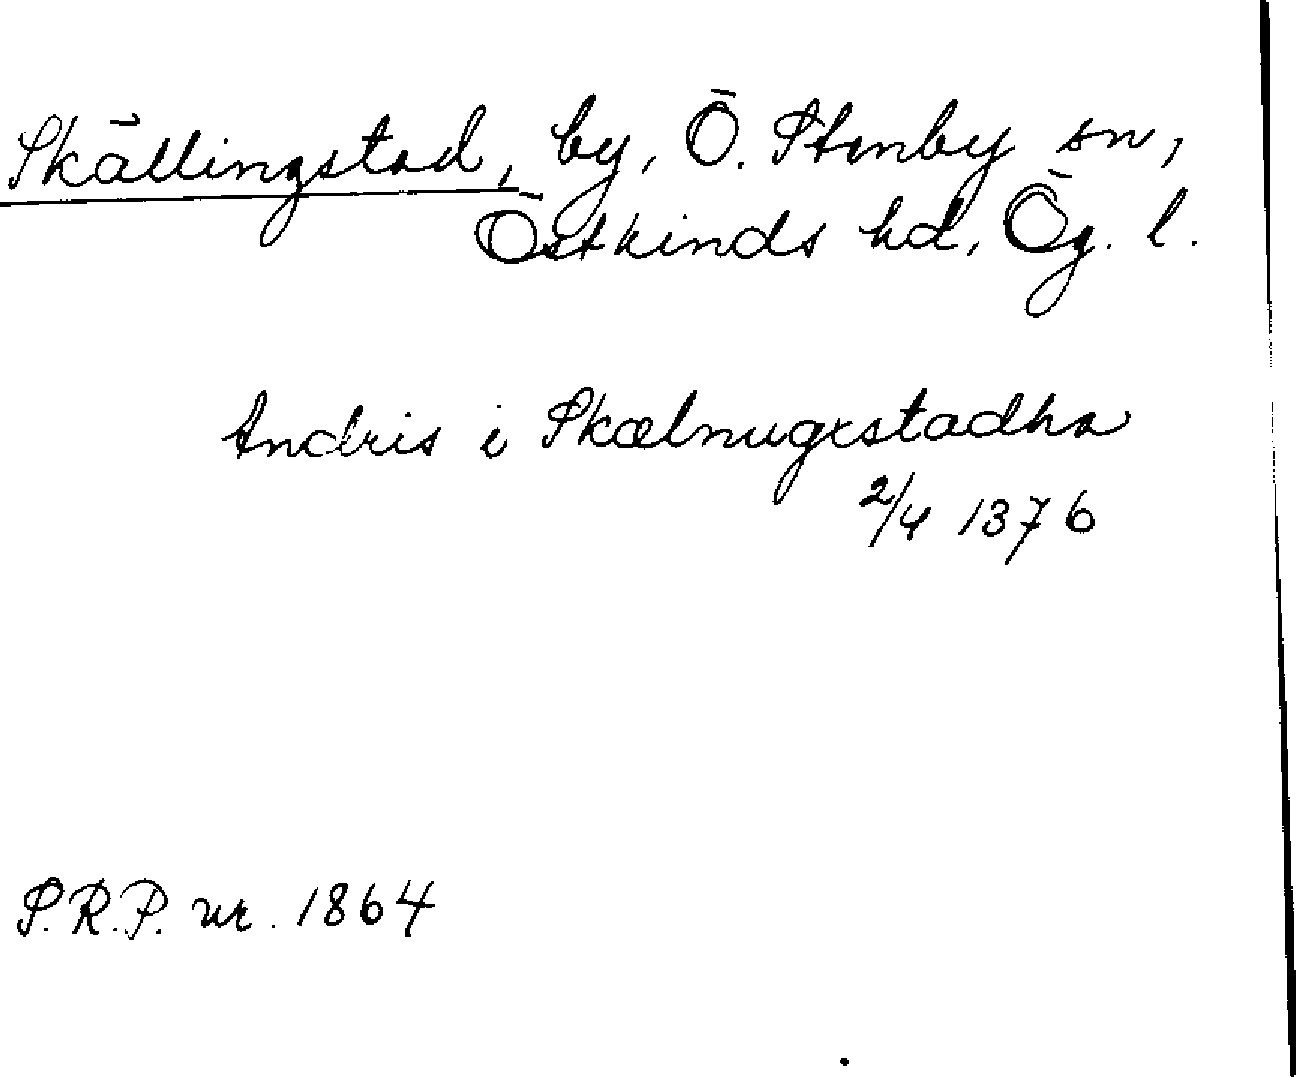 Skällingstad, by, Ö. Stenby sn,
Östkinds hd, Ög. l.
Andris i Skælnugestadha
2/4 1376
S.R.P. nr. 1864